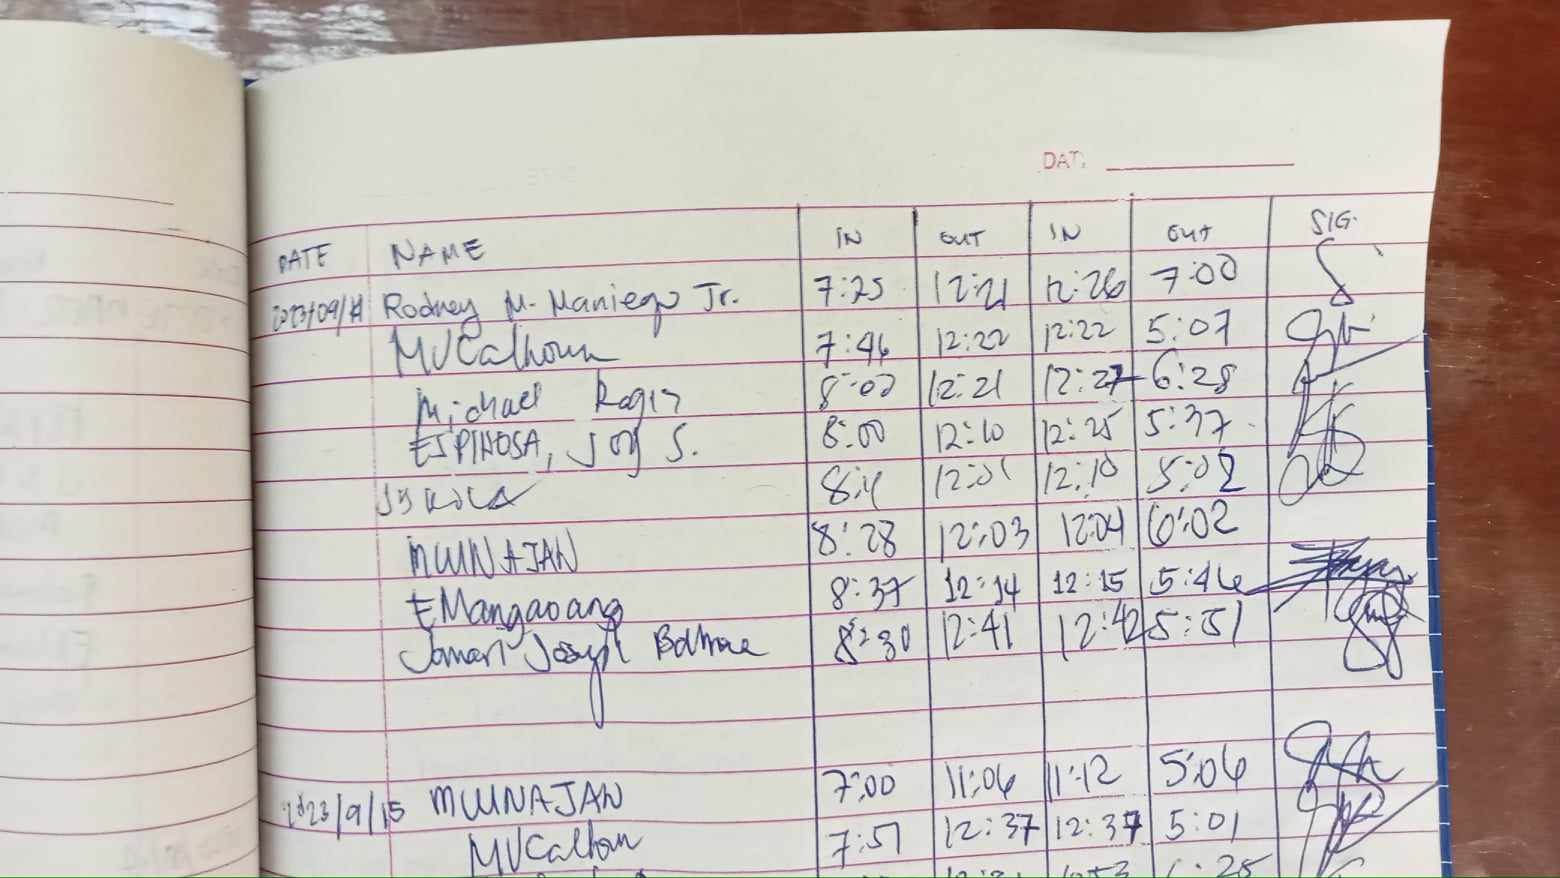 DATE
DATE NAME IN OUT IN OUT SIG.
2023/09/14 Rodney M. Maniego Jr. 7:25 12:21 12:26 7:00
MVCalhoun 7:46 12:22 12:22 5:07
Michael 8:00 12:21 12:27 6:28
ESPINOSA, Joy S. 8:00 12:10 12:25 5:37
12:10 5:02
MWNAJAN 8:28 12:03 12:04 6:02
EMangaoang 8:37 12:14 12:15 5:46
Joseph 8:30 12:41 12:42 5:51
2023/9/15 MWNAJAN 7:00 11:06 11:12 5:06
MVCalhoun 7:51 12:37 12:37 5:01